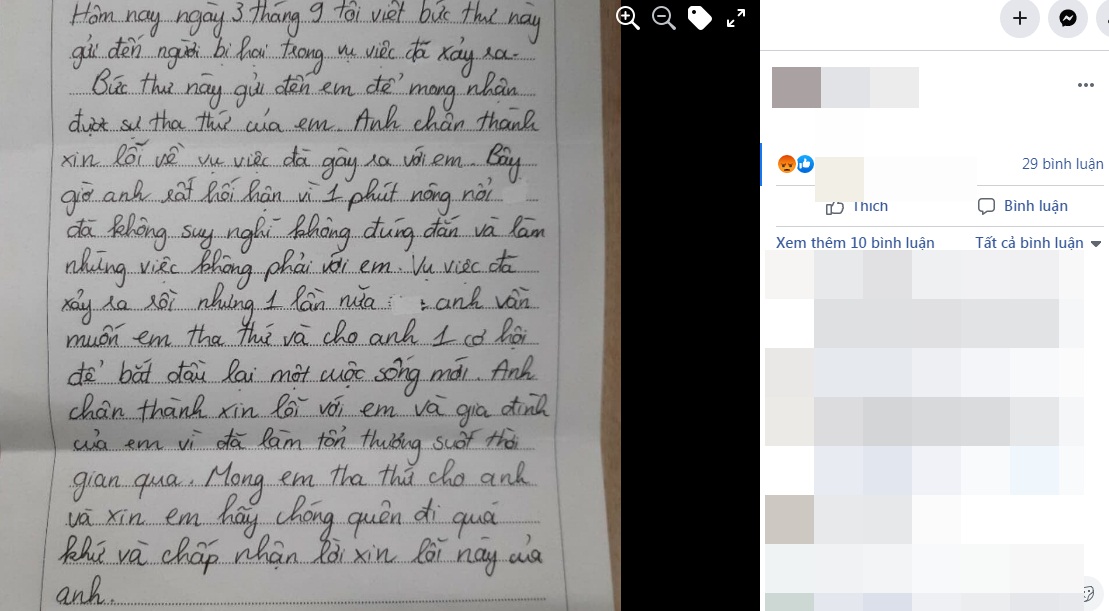 Hôm nay ngày 3 tháng 9 tôi viết bức thư này
gửi đến người bị hại trong vụ việc đã xảy ra.
Bức thư này gửi đến em để mong nhận
được sự tha thứ của em. Anh chân thành
xin lỗi về vụ việc đã gây ra với em. Bây
giờ anh rất hối hận vì 1 phút nông nổi
đã không suy nghĩ không đúng đắn và làm
những việc không phải với em. Vụ việc đã
xảy ra rồi nhưng 1 lần nữa : anh vẫn
muốn em tha thứ và cho anh 1 cơ hội
để bắt đầu lại một cuộc sống mới. Anh
chân thành xin lỗi với em và gia đình
của em vì đã làm tổn thương suốt thời
gian qua. Mong em tha thứ cho anh
và xin em hãy chóng quên đi quá
khứ và chấp nhận lời xin lỗi này của
anh.
29 bình luận
Thích
Bình luận
Xem thêm 10 bình luận
Tất cả bình luận